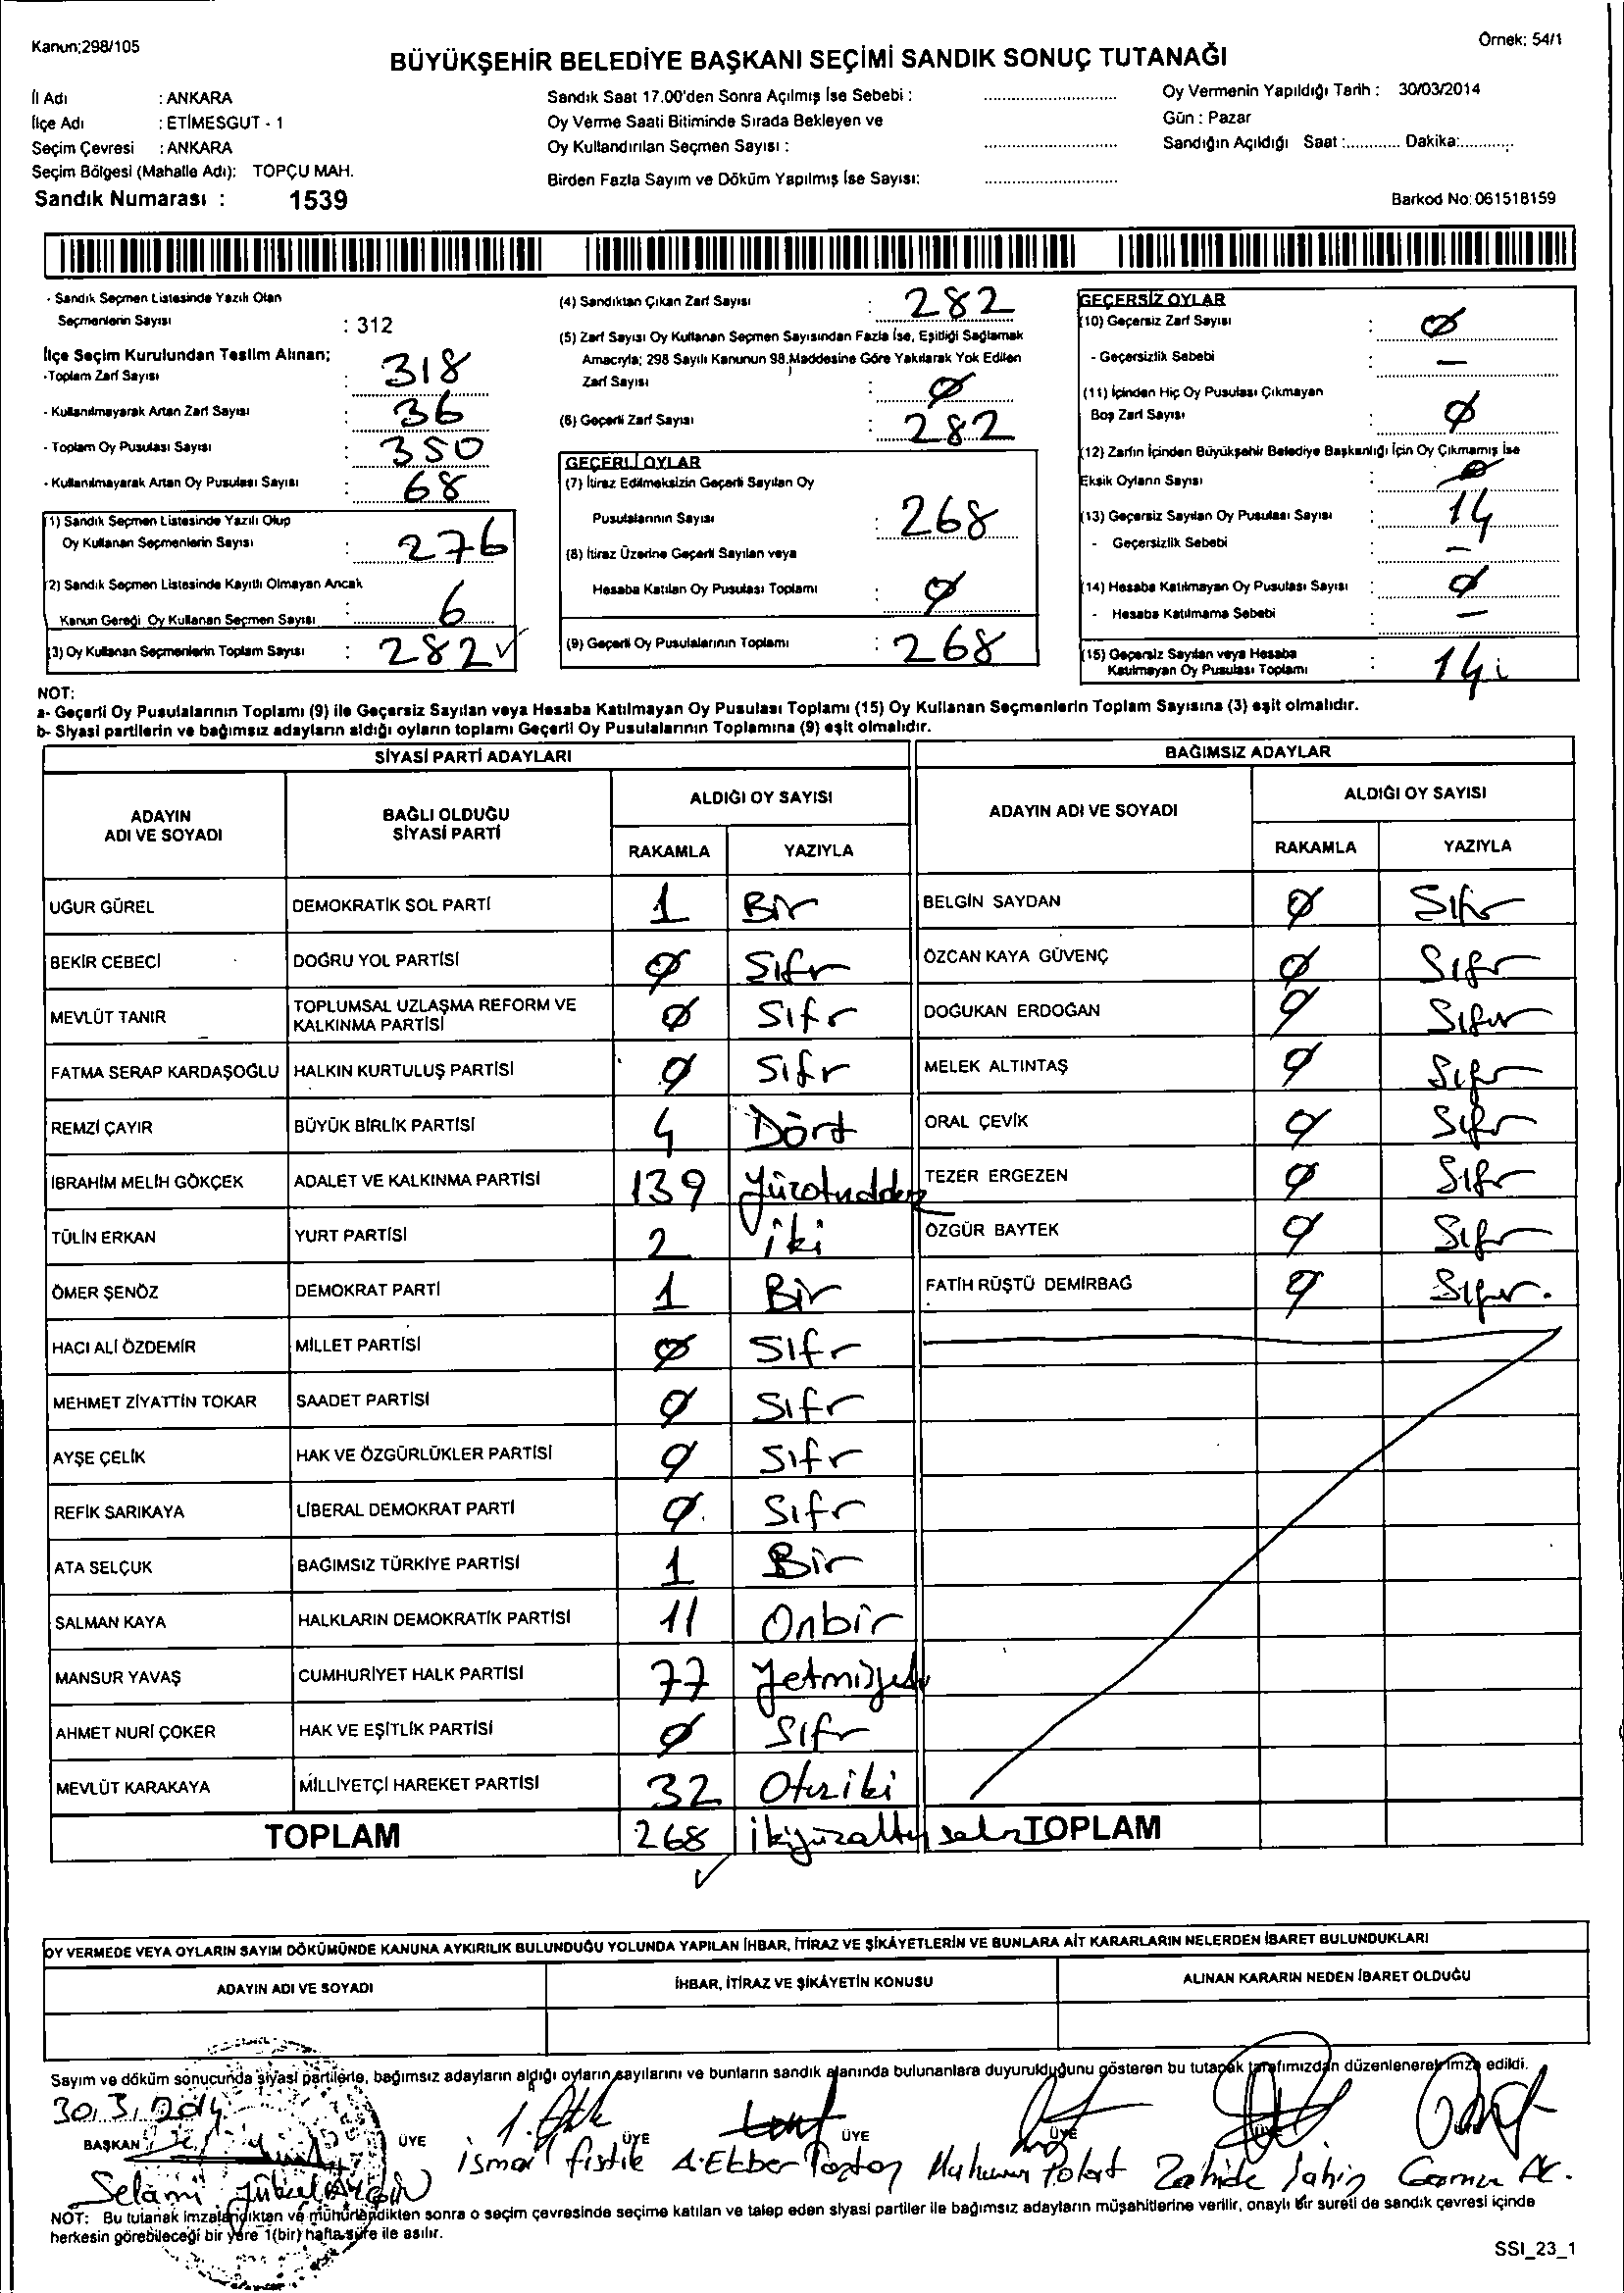 Kanun;298/105
Örnek: 54/1
BÜYÜKŞEHİR BELEDİYE BAŞKANI SEÇİMİ SANDIK SONUÇ TUTANAĞI
İl Adı : ANKARA
İlçe Adı : ETİMESGUT - 1
Seçim Çevresi : ANKARA
Seçim Bölgesi (Mahalle Adı): TOPÇU MAH.
Sandık Numarası : 1539
Sandık Saat 17.00'den Sonra Açılmış İse Sebebi :
Oy Verme Saati Bitiminde Sırada Bekleyen ve
Oy Kullandırılan Seçmen Sayısı :
Birden Fazla Sayım ve Döküm Yapılmış İse Sayısı:
Oy Vermenin Yapıldığı Tarih : 30/03/2014
Gün : Pazar
Sandığın Açıldığı Saat :............ Dakika:............
Barkod No: 061518159
- Sandık Seçmen Listesinde Yazılı Olan
Seçmenlerin Sayısı : 312
İlçe Seçim Kurulundan Teslim Alınan;
-Toplam Zarf Sayısı : 318
- Kullanılmayarak Artan Zarf Sayısı : 36
- Toplam Oy Pusulası Sayısı : 350
- Kullanılmayarak Artan Oy Pusulası Sayısı : 68
(1) Sandık Seçmen Listesinde Yazılı Olup
Oy Kullanan Seçmenlerin Sayısı : 276
(2) Sandık Seçmen Listesinde Kayıtlı Olmayan Ancak
Kanun Gereği Oy Kullanan Seçmen Sayısı : 6
(3) Oy Kullanan Seçmenlerin Toplam Sayısı : 282 ✓
(4) Sandıktan Çıkan Zarf Sayısı : 282
(5) Zarf Sayısı Oy Kullanan Seçmen Sayısından Fazla İse, Eşitliği Sağlamak
Amacıyla; 298 Sayılı Kanunun 98.Maddesine Göre Yakılarak Yok Edilen
Zarf Sayısı : Ø
(6) Geçerli Zarf Sayısı : 282
GEÇERLİ OYLAR
(7) İtiraz Edilmeksizin Geçerli Sayılan Oy
Pusulalarının Sayısı : 268
(8) İtiraz Üzerine Geçerli Sayılan veya
Hesaba Katılan Oy Pusulası Toplamı : Ø
(9) Geçerli Oy Pusulalarının Toplamı : 268
GEÇERSİZ OYLAR
(10) Geçersiz Zarf Sayısı : Ø
- Geçersizlik Sebebi : —
(11) İçinden Hiç Oy Pusulası Çıkmayan
Boş Zarf Sayısı : Ø
(12) Zarfın İçinden Büyükşehir Belediye Başkanlığı İçin Oy Çıkmamış İse
Eksik Oyların Sayısı : Ø
(13) Geçersiz Sayılan Oy Pusulası Sayısı : 14
- Geçersizlik Sebebi : —
(14) Hesaba Katılmayan Oy Pusulası Sayısı : Ø
- Hesaba Katılmama Sebebi : —
(15) Geçersiz Sayılan veya Hesaba
Katılmayan Oy Pusulası Toplamı : 14
NOT:
a- Geçerli Oy Pusulalarının Toplamı (9) ile Geçersiz Sayılan veya Hesaba Katılmayan Oy Pusulası Toplamı (15) Oy Kullanan Seçmenlerin Toplam Sayısına (3) eşit olmalıdır.
b- Siyasi partilerin ve bağımsız adayların aldığı oyların toplamı Geçerli Oy Pusulalarının Toplamına (9) eşit olmalıdır.
SİYASİ PARTİ ADAYLARI
ADAYIN ADI VE SOYADI BAĞLI OLDUĞU SİYASİ PARTİ ALDIĞI OY SAYISI
RAKAMLA YAZIYLA
UĞUR GÜREL DEMOKRATİK SOL PARTİ 1 Bir
BEKİR CEBECİ DOĞRU YOL PARTİSİ Ø Sıfr
MEVLÜT TANIR TOPLUMSAL UZLAŞMA REFORM VE KALKINMA PARTİSİ Ø Sıfr
FATMA SERAP KARDAŞOĞLU HALKIN KURTULUŞ PARTİSİ Ø Sıfr
REMZİ ÇAYIR BÜYÜK BİRLİK PARTİSİ 4 Dört
İBRAHİM MELİH GÖKÇEK ADALET VE KALKINMA PARTİSİ 139
TÜLİN ERKAN YURT PARTİSİ 2 iki
ÖMER ŞENÖZ DEMOKRAT PARTİ 1 Bir
HACI ALİ ÖZDEMİR MİLLET PARTİSİ Ø Sıfr
MEHMET ZİYATTİN TOKAR SAADET PARTİSİ Ø Sıfr
AYŞE ÇELİK HAK VE ÖZGÜRLÜKLER PARTİSİ Ø Sıfr
REFİK SARIKAYA LİBERAL DEMOKRAT PARTİ Ø Sıfr
ATA SELÇUK BAĞIMSIZ TÜRKİYE PARTİSİ 1 Bir
SALMAN KAYA HALKLARIN DEMOKRATİK PARTİSİ 11 Onbir
MANSUR YAVAŞ CUMHURİYET HALK PARTİSİ 77 Yetmişyedi
AHMET NURİ ÇOKER HAK VE EŞİTLİK PARTİSİ Ø Sıfr
MEVLÜT KARAKAYA MİLLİYETÇİ HAREKET PARTİSİ 32 Otuziki
TOPLAM 268 ✓
BAĞIMSIZ ADAYLAR
ADAYIN ADI VE SOYADI ALDIĞI OY SAYISI
RAKAMLA YAZIYLA
BELGİN SAYDAN Ø Sıfr
ÖZCAN KAYA GÜVENÇ Ø Sıfr
DOĞUKAN ERDOĞAN Ø Sıfır
MELEK ALTINTAŞ Ø Sıfr
ORAL ÇEVİK Ø Sıfr
TEZER ERGEZEN Ø Sıfr
ÖZGÜR BAYTEK Ø Sıfr
FATİH RÜŞTÜ DEMİRBAĞ Ø Sıfır.
TOPLAM
OY VERMEDE VEYA OYLARIN SAYIM DÖKÜMÜNDE KANUNA AYKIRILIK BULUNDUĞU YOLUNDA YAPILAN İHBAR, İTİRAZ VE ŞİKÂYETLERİN VE BUNLARA AİT KARARLARIN NELERDEN İBARET BULUNDUKLARI
ADAYIN ADI VE SOYADI İHBAR, İTİRAZ VE ŞİKÂYETİN KONUSU ALINAN KARARIN NEDEN İBARET OLDUĞU
Sayım ve döküm sonucunda siyasi partilerle, bağımsız adayların aldığı oyların sayılarını ve bunların sandık alanında bulunanlara duyurulduğunu gösteren bu tutanak tarafımızdan düzenlenerek imza edildi.
30.3.2014
BAŞKAN ÜYE ÜYE ÜYE ÜYE ÜYE
Selami
NOT: Bu tutanak imzalandıktan ve mühürlendikten sonra o seçim çevresinde seçime katılan ve talep eden siyasi partiler ile bağımsız adayların müşahitlerine verilir, onaylı bir sureti de sandık çevresi içinde
herkesin görebileceği bir yere 1(bir) hafta süre ile asılır.
SSI_23_1